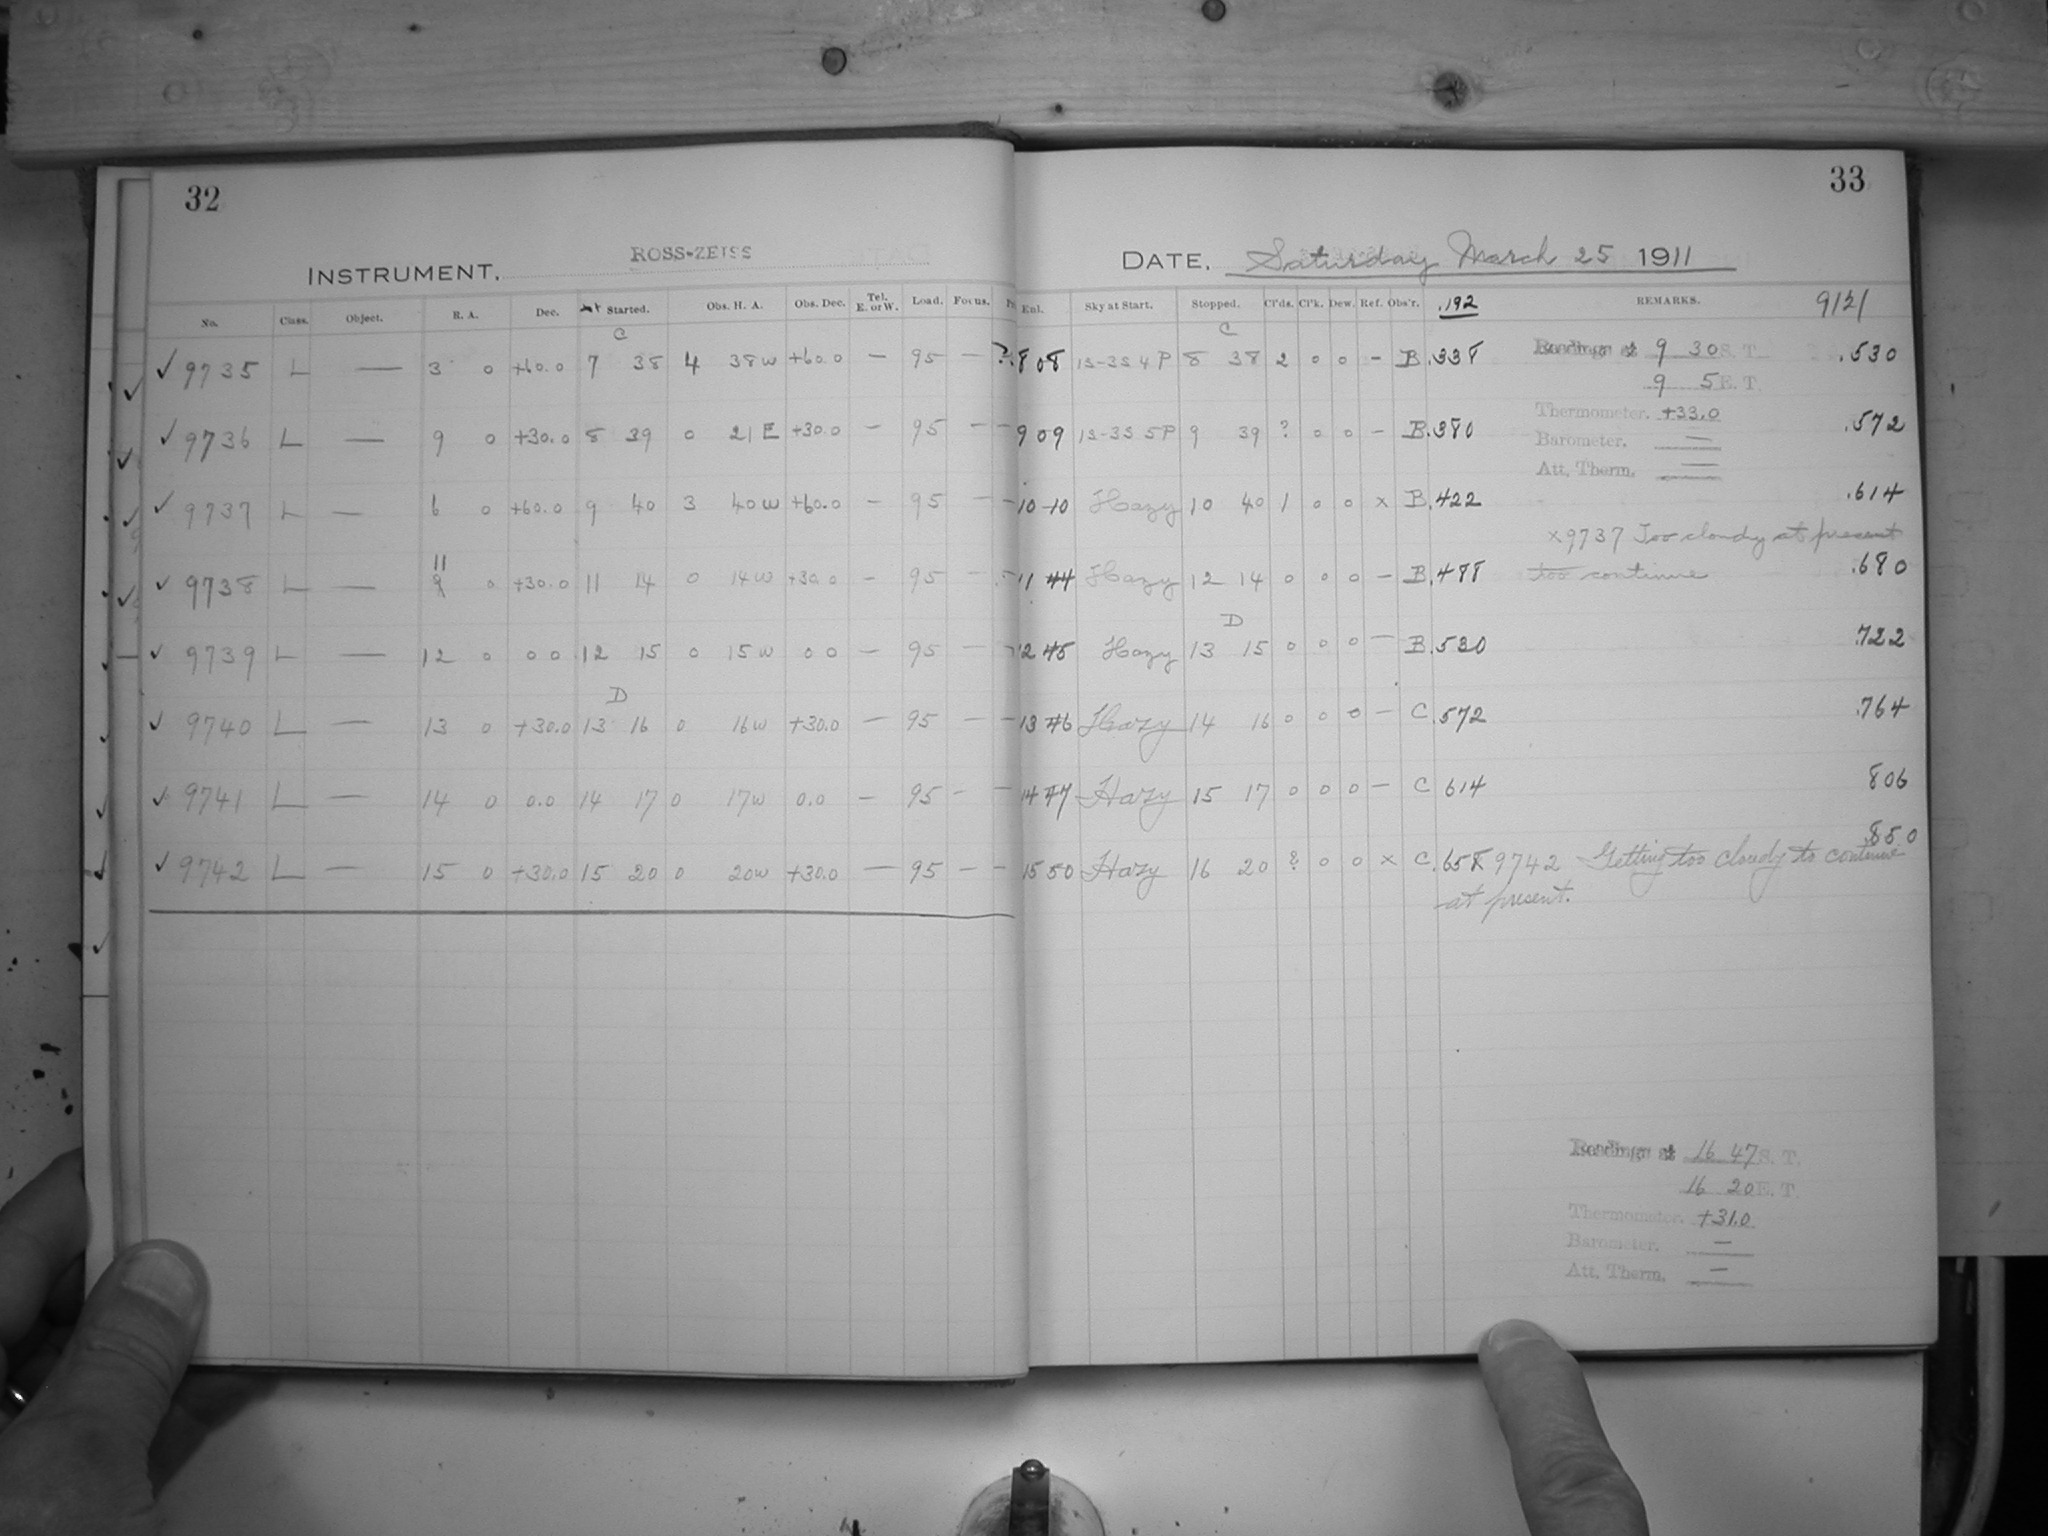 32
INSTRUMENT. ROSS-ZEISS
No. Class. Object. R. A. Dec. Started. Obs. H. A. Obs. Dec. Tel. E. or W. Load. Focus.
C
✓ 9735 L — 3 0 +60.0 7 38 4 38w +60.0 — 95 — ?
✓ 9736 L — 9 0 +30.0 8 39 0 21 E +30.0 — 95 — —
✓ 9737 L — 6 0 +60.0 9 40 3 40w +60.0 — 95 — —
11
✓ 9738 L — 9 0 +30.0 11 14 0 14w +30.0 — 95 —
✓ 9739 L — 12 0 0 0 12 15 0 15w 0 0 — 95 —
D
✓ 9740 L — 13 0 +30.0 13 16 0 16w +30.0 — 95 — —
✓ 9741 L — 14 0 0.0 14 17 0 17w 0.0 — 95 — —
✓ 9742 L — 15 0 +30.0 15 20 0 20w +30.0 — 95 — —
33
DATE. Saturday March 25 1911
Enl. Sky at Start. Stopped. Cl'ds. Cl'k. Dew. Ref. Obs'r. .192 REMARKS. 9121
C
8 08 1S-3S 4P 8 38 2 0 0 — B .338 Readings at 9 30 S.T. .530
9 5 E.T.
Thermometer. +33.0
9 09 1S-3S 5P 9 39 ? 0 0 — B .380 .572
Barometer. —
Att. Therm. —
10 10 Hazy 10 40 1 0 0 x B .422 .614
x 9737 Too cloudy at present
11 44 Hazy 12 14 0 0 0 — B .488 too continue .680
D
12 45 Hazy 13 15 0 0 0 — B .530 .722
13 46 Hazy 14 16 0 0 0 — C .572 .764
14 47 Hazy 15 17 0 0 0 — C 614 806
850
15 50 Hazy 16 20 ? 0 0 x C .658 x 9742 Getting too cloudy to continue
at present.
Readings at 16 47 S.T.
16 20 E.T.
Thermometer. +31.0
Barometer. —
Att. Therm. —